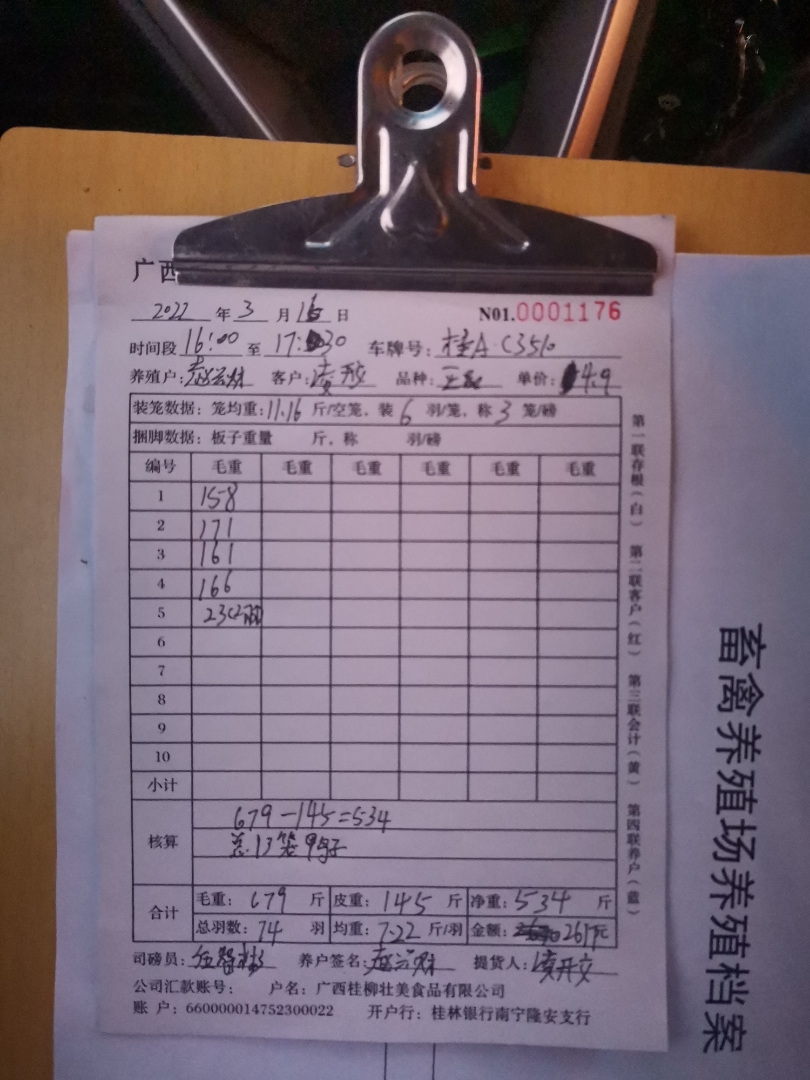 广西
2022 年 3 月 16 日 N01.0001176
时间段 16:00 至 17:30 车牌号: 桂A·C3510
养殖户: 赵云财 客户: 凌开文 品种: 单价: 4.9
装笼数据: 笼均重: 11.16 斤/空笼, 装 6 羽/笼, 称 3 笼/磅
捆脚数据: 板子重量 斤, 称 羽/磅
编号 毛重 毛重 毛重 毛重 毛重 毛重
1 158
2 171
3 161
4 166
5 23
6
7
8
9
10
小计
核算 679-145=534
总13笼
合计 毛重: 679 斤 皮重: 145 斤 净重: 534 斤
总羽数: 74 羽 均重: 7.22 斤/羽 金额: 2617元
司磅员: 养户签名: 赵云财 提货人: 凌开文
公司汇款账号: 户名: 广西桂柳壮美食品有限公司
账 户: 660000014752300022 开户行: 桂林银行南宁隆安支行
第一联存根(白) 第二联客户(红) 第三联会计(黄) 第四联养户(蓝)
畜禽养殖场养殖档案